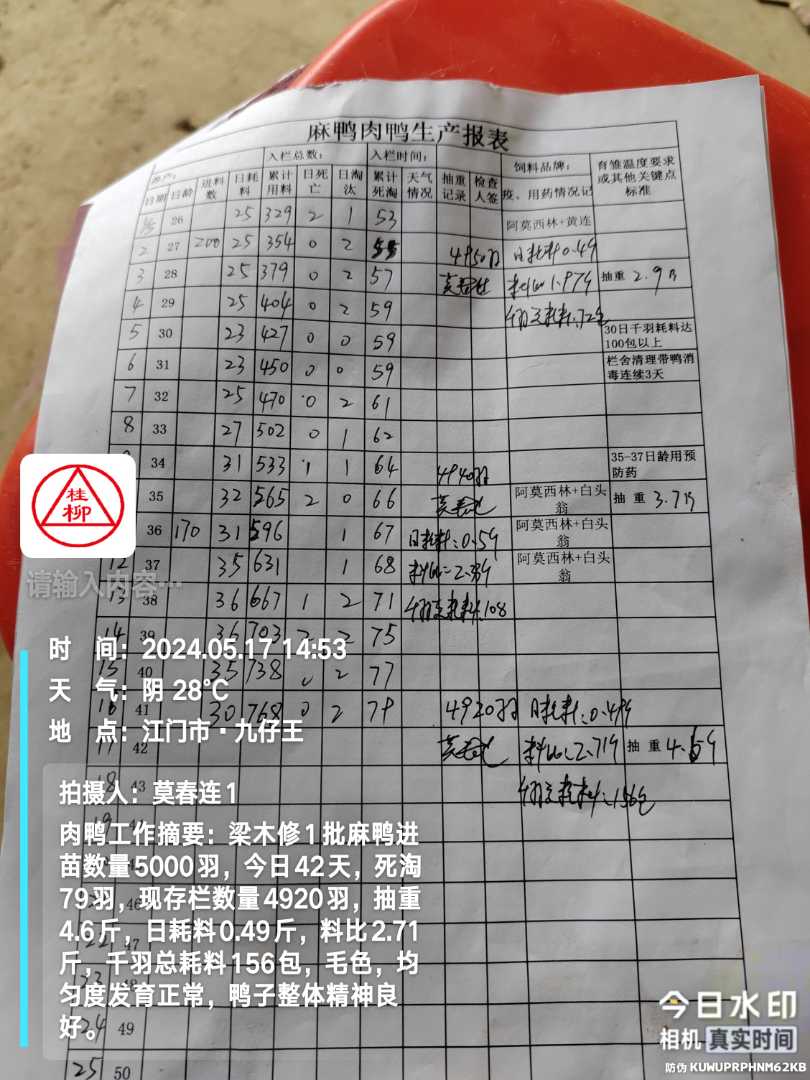 麻鸭肉鸭生产报表
入栏总数： 入栏时间： 饲料品牌： 育雏温度要求或其他关键点标准
日期 日龄 进料数 日耗料 累计用料 日死亡 日淘汰 累计死淘 天气情况 抽重记录 检查人签 疫、用药情况记
26 25 329 2 1 53 阿莫西林+黄连
2 27 200 25 354 0 2 55 4950羽 日耗料0.49
3 28 25 379 0 2 57 莫春连 料比1.97斤 抽重 2.9斤
4 29 25 404 0 2 59 千羽总耗料:72包
5 30 23 427 0 0 59 30日千羽耗料达100包以上
6 31 23 450 0 0 59 栏舍清理带鸭消毒连续3天
7 32 25 470 0 2 61
8 33 27 502 0 1 62
34 31 533 1 1 64 4940羽 35-37日龄用预防药
35 32 565 2 0 66 莫春连 阿莫西林+白头翁 抽重 3.7斤
36 170 31 596 1 67 日耗料:0.5斤 阿莫西林+白头翁
12 37 35 631 1 68 阿莫西林+白头翁
13 38 36 667 1 2 71 千羽总耗料:108
14 39 36 703 2 2 75
15 40 35 738 2 77
16 41 30 768 0 2 79 4920羽 日耗料:0.49斤
17 42 莫春连 料比:2.71斤 抽重
18 43 千羽总耗料:156包
46
22 47
24 49
25 50
桂柳
请输入内容…
时 间：2024.05.17 14:53
天 气：阴 28°C
地 点：江门市·九仔王
拍摄人：莫春连1
肉鸭工作摘要：梁木修1批麻鸭进
苗数量5000羽，今日42天，死淘
79羽，现存栏数量4920羽，抽重
4.6斤，日耗料0.49斤，料比2.71
斤，千羽总耗料156包，毛色，均
匀度发育正常，鸭子整体精神良
好。
今日水印
相机 真实时间
防伪 KUWUPRPHNM62KB